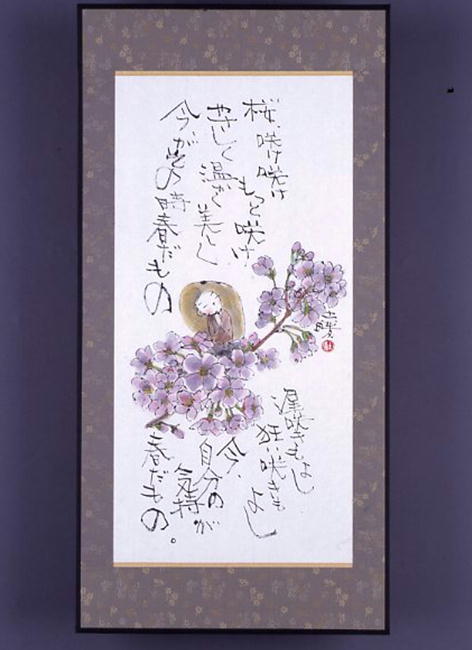 桜、咲け咲け
もっと咲け
やさしく温かく美しく
今がその時春だもの
遅咲きもよし
狂い咲きもよし
今、
自分の
気持が
春だもの。